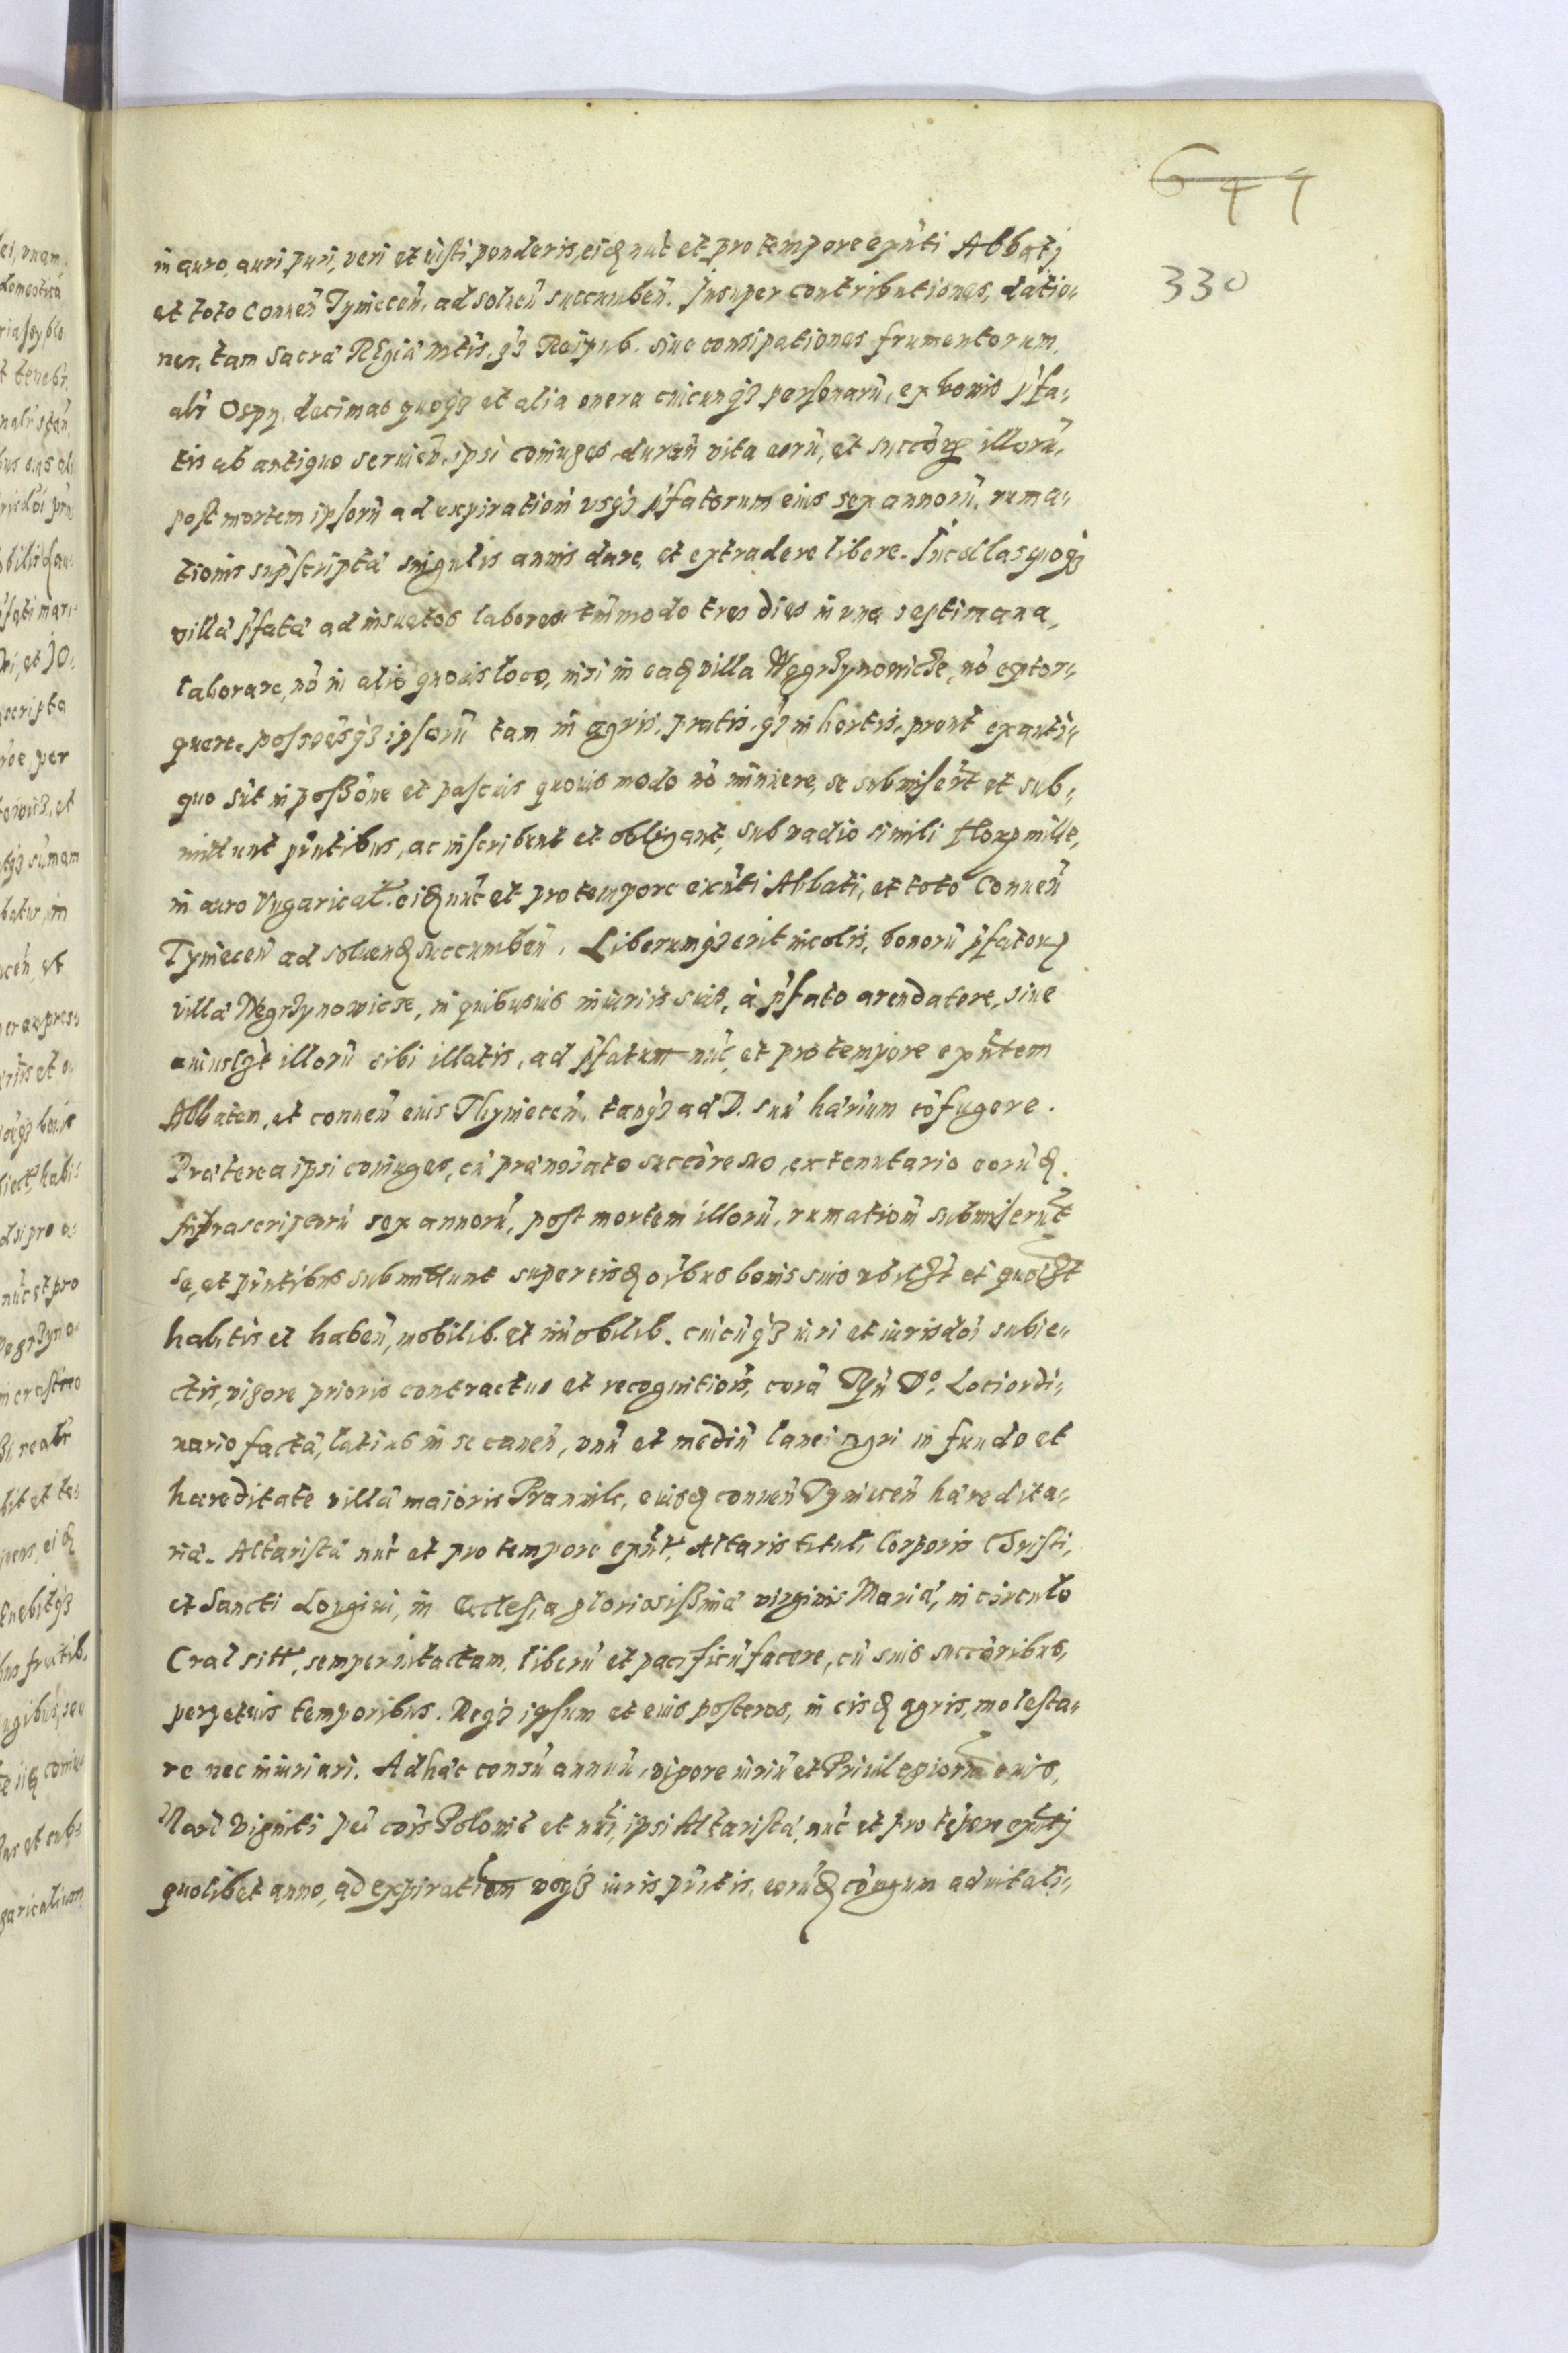 644
330
in auro, auri puri, veri et iusti ponderis, eidē nūc et pro tempore exñti Abbatj
et toto Conuen̄ Tynieceñ, ad soluen̄ succumben̄. Insuper contributiones, datio-
nes, tam Sacræ Regiæ Mtis, q̃3 Reipub. siue consipationes frumentorum,
al's Osyp, decimas quoq3 et alia onera cuicunq3 personarū, ex bonis p̃fa-
tis ab antiquo seruien̄, ipsi coniuges, duran̄ vita eorū, et succōrꝝ illorū,
post mortem ipsorū ad expirationē vsq3 p̃fatorum eius sex annorū, ruma-
tionis sup̃scriptæ singulis annis dare, et extradere libere. Incolas quoq3
villæ p̃fatæ ad insuetos labores tm̄modo tres dies in vna septimana,
laborare, nō in alio quouis loco, nisi in eadē villa Węgrzynowicze, nō extor-
quere. possoēsq3 ipsorū tam in agris, pratis, q̃3 in hortis, prout ex anti-
quo sūt in possōne et pascuis quouis modo nō minuere, se submiserūt et sub-
mittunt pñtibus, ac inscribunt et obligant, sub vadio simili florꝝ mille,
in auro Vngarical. eidē nūc et pro tempore exñti Abbati, et toto Conuen̄
Tynieceñ ad soluendē succumben̄. Liberumq3 erit incolis, bonorū p̃fatorꝝ
villæ Wegrzynowicze, in quibusuis iniuriis suis, à p̃fato arendatore, siue
cuiuslꝫt illorū sibi illatis, ad p̃fatum nūc, et pro tempore exñtem
Abbatem, et conuen̄ eius Thynieceñ, tanq3 ad D. suū hærium cōfugere.
Præterea ipsi coniuges, cū prænoīato succōre suo, ex tenutario eorūdē
suprascriptorū sex annorū, post mortem illorū, rumationū submiserūt
se, et pñtibus submittunt super eisdē oībus bonis suis vbilꝫt et quolꝫt
habitis et haben̄, mobilib. et immobilib. cuicūq3 iuri et iurisdōi subie-
ctis, vigore prioris contractus et recognitionis, corā Rñ Do. Loci ordi-
nario factæ, latius in se canen̄, vnū et mediū lanei agri in fundo et
hæreditate villæ maioris Prandnik, eiusdē conuen̄ Tynieceñ hæredita-
riæ. Altaristæ nūc et pro tempore exñti, Altaris tituli Corporis Christi,
et Sancti Longini, in Ecclesia gloriosissimæ virginis Mariæ, in circulo
Crac sitt, semper intactam, liberū et pacificū facere, cū suis succōribus,
perpetuis temporibus. Neq3 ipsum et eius posteros, in eisdē agris, molesta-
re nec iniuriari. Ad hæc consū annuū, vigore iuriū et Priuilegiorū eius,
Marc viginti pec̄ cōis Polonic et nri, ipsi Altaristæ, nūc et pro tēpore exñtj
quolibet anno, ad expirationem vsq3 iuris pñtis, eorūdē cōiugum aduitali-